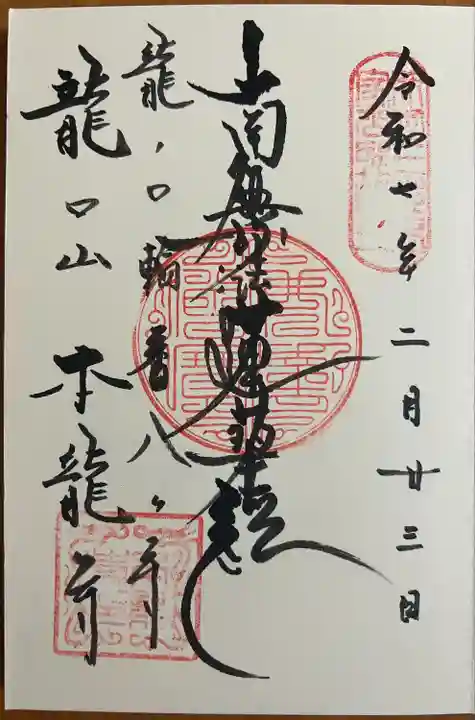 令和七年二月廿三日
南無妙法蓮華経
龍ノ口輪番八ヶ寺
龍口山本龍寺